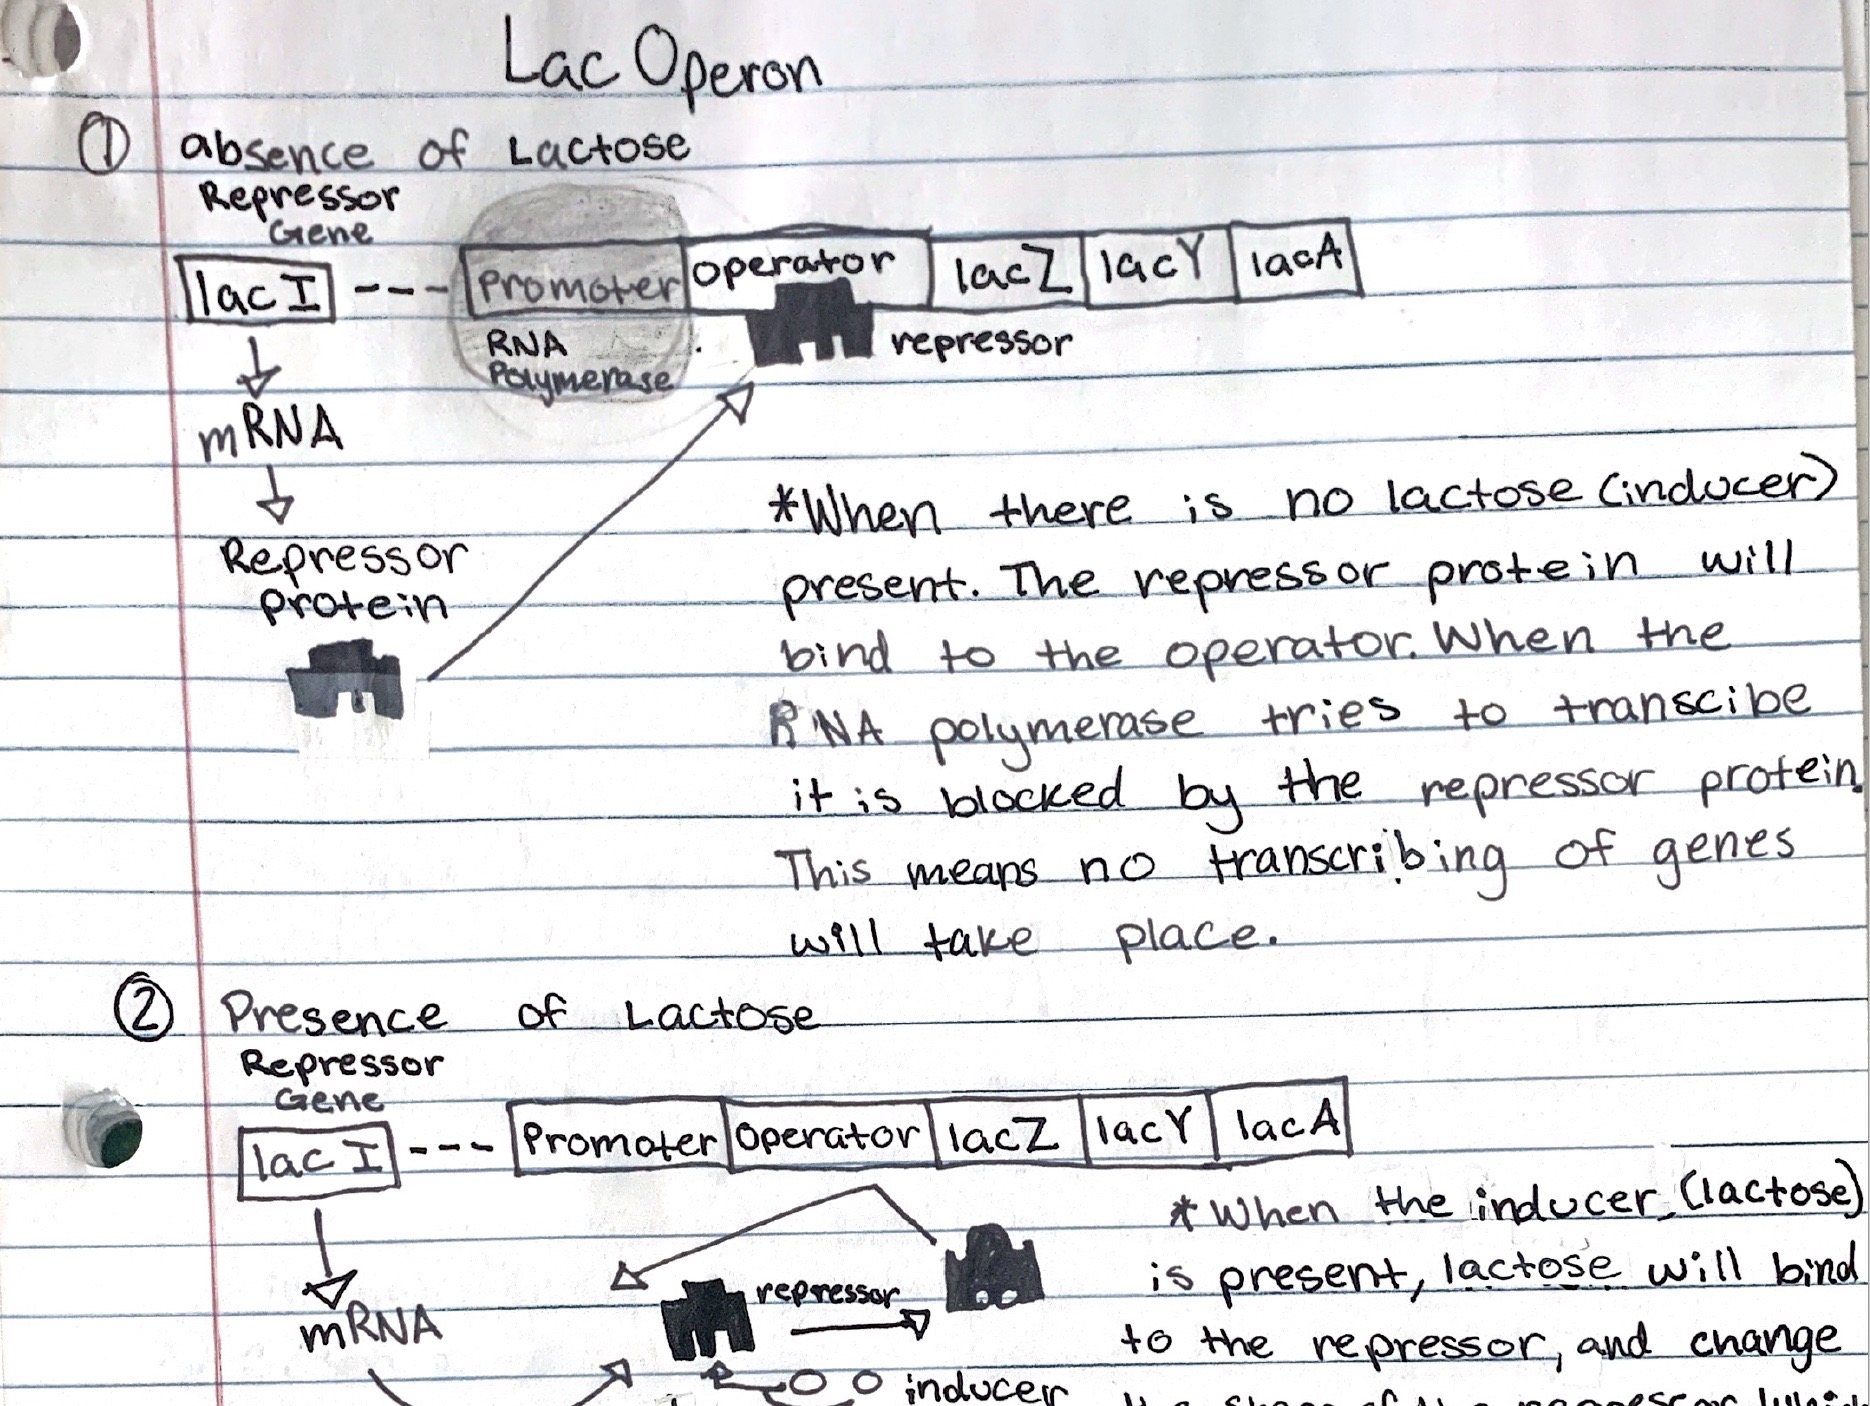 Lac Operon
① absence of Lactose
Repressor
Gene
lac I --- Promoter operator lacZ lacY lacA
RNA
Polymerase
repressor
mRNA
Repressor
protein
*When there is no lactose (inducer)
present. The repressor protein will
bind to the operator. When the
RNA polymerase tries to transcibe
it is blocked by the repressor protein.
This means no transcribing of genes
will take place.
② Presence of Lactose
Repressor
Gene
lac I --- Promoter Operator lacZ lacY lacA
mRNA
repressor
inducer
*When the inducer (lactose)
is present, lactose will bind
to the repressor, and change